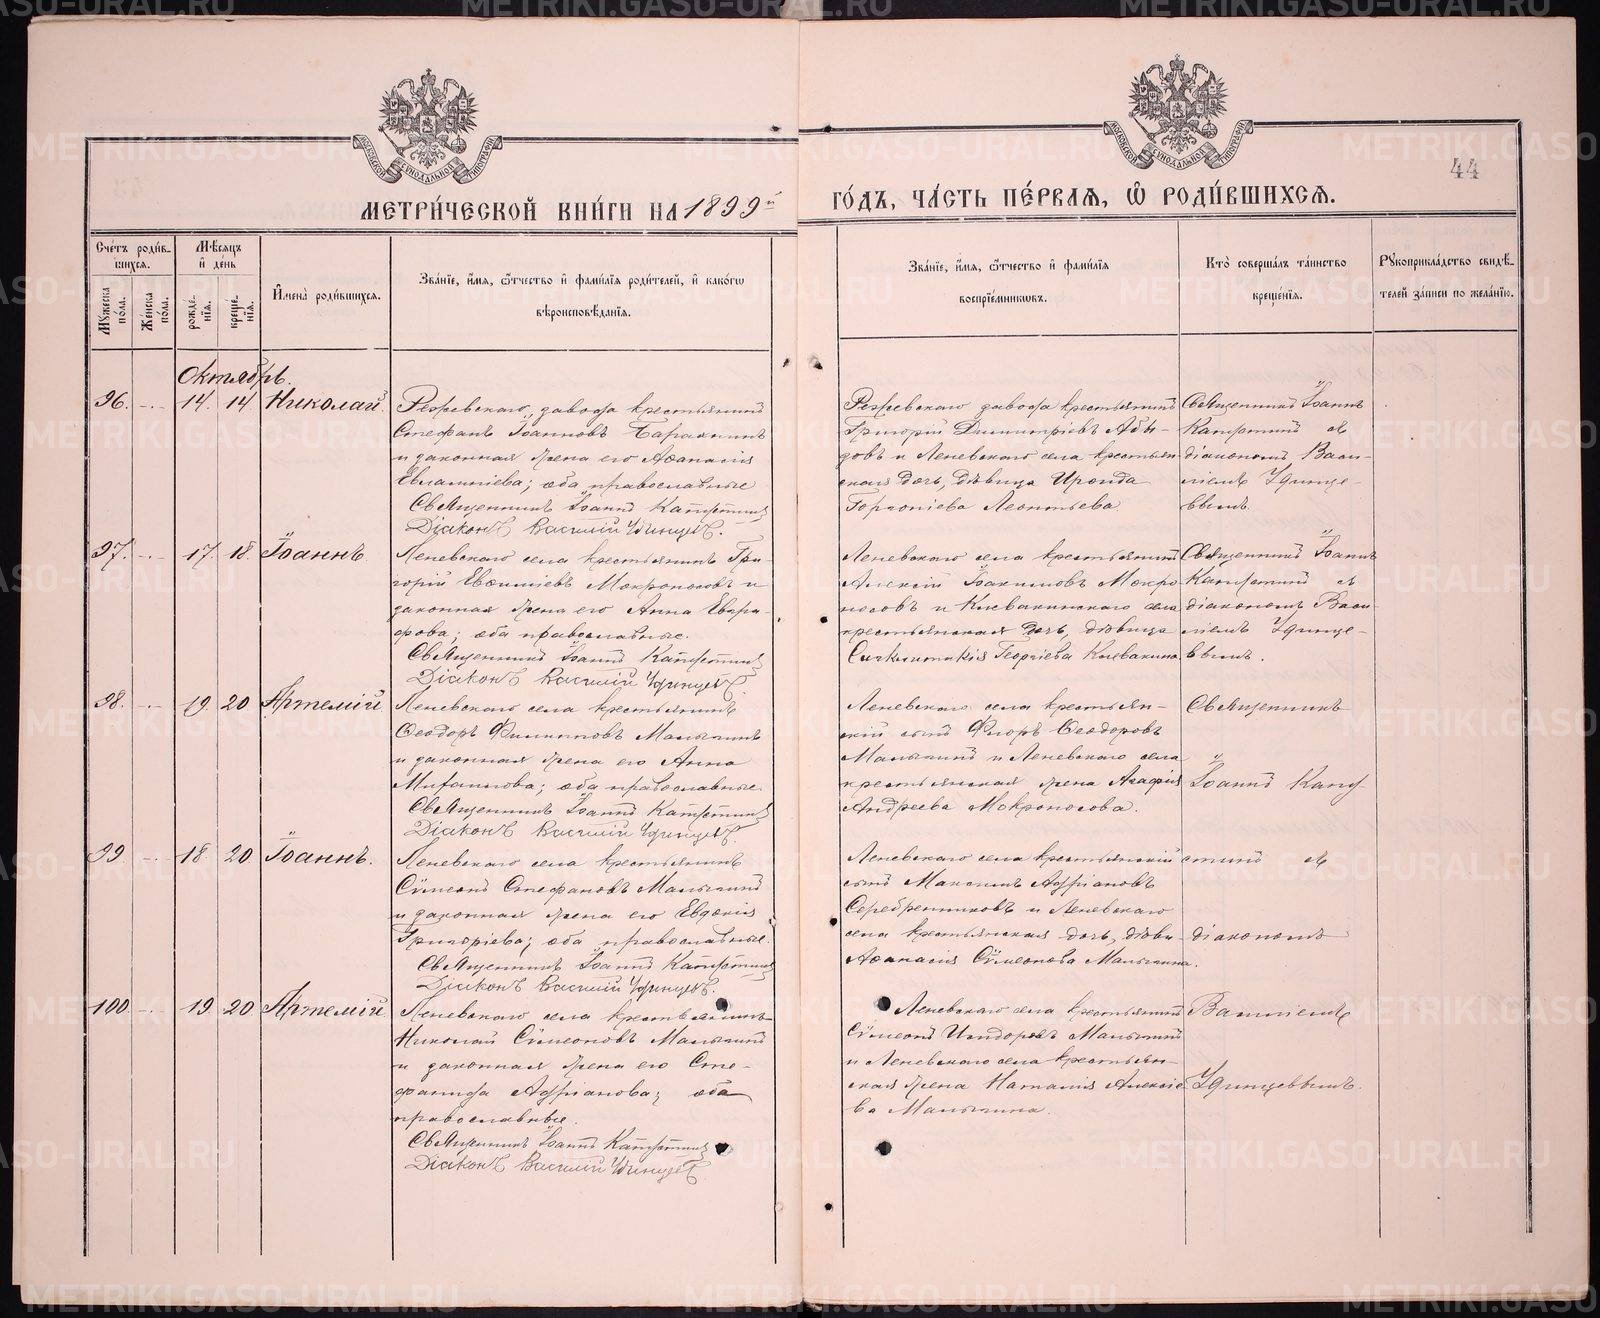 МЕТРИ́ЧЕСКОЙ КНИ́ГИ НА 1899й
ГО́ДЪ, ЧА́СТЬ ПЕ́РВАЯ, Ѡ҆ РОДИ́ВШИХСЯ.
44
Сче́тъ роди́в-
шихся.
Мꙋ́жеска по́ла.
Же́нска по́ла.
Мѣ́сяцъ
и҆ де́нь
рожде́-
нїя.
креще́-
нїя.
И҆мена̀ роди́вшихся.
Зва́нїе, и҆́мя, ѻ҆́тчество и҆ фами́лїя роди́телей, и҆ како́гѡ
вѣроисповѣ́данїя.
Зва́нїе, и҆́мя, ѻ҆́тчество и҆ фами́лїя
воспрїе́мникѡвъ.
Кто̀ соверша́лъ та́инство
креще́нїя.
Рꙋкоприкла́дство свидѣ́-
телей за́писи по жела́нїю.
Октябрь.
96. -.- 14. 14 Николай.
Режевскаго завода крестьянинъ
Стефанъ Іоанновъ Баракнинъ
и законная жена его Аѳанасія
Евлампіева; оба православные
Священникъ Іоаннъ
Діаконъ Василій Удинцевъ.
Режевскаго завода крестьянинъ
Григорій Димитріевъ Абы-
довъ и Леневскаго села крестьян-
ская дочь, дѣвица Ироида
Горгоніева Леонтьева.
Священникъ Іоаннъ
съ
діакономъ Васи-
ліемъ Удинце-
вымъ.
97. -.- 17. 18. Іоаннъ.
Леневскаго села крестьянинъ Гри-
горій Евѳиміевъ Мокроносовъ и
законная жена его Анна Евгра-
фова; оба православные.
Священникъ Іоаннъ
Діаконъ Василій Удинцевъ.
Леневскаго села крестьянинъ
Алексій Іоакимовъ Мокро-
носовъ и Клевакинскаго села
крестьянская дочь, дѣвица
Георгіева Клевакина.
Священникъ Іоаннъ
съ
діакономъ Васи-
ліемъ Удинце-
вымъ.
98. -.- 19. 20 Артемій.
Леневскаго села крестьянинъ
Ѳеодоръ Филипповъ Малыгинъ
и законная жена его Анна
; оба православные.
Священникъ Іоаннъ
Діаконъ Василій Удинцевъ.
Леневскаго села крестьян-
скій сынъ Флоръ Ѳеодоровъ
Малыгинъ и Леневскаго села
крестьянская жена Агафія
Андреева Мокроносова.
Священникъ
Іоаннъ
99. -.- 18. 20. Іоаннъ.
Леневскаго села крестьянинъ
Сѵмеонъ Стефановъ Малыгинъ
и законная жена его Евдокія
Григоріева; оба православные.
Священникъ Іоаннъ
Діаконъ Василій Удинцевъ.
Леневскаго села крестьянскій
сынъ Максимъ Адріановъ
Серебренниковъ и Леневскаго
села крестьянская дочь, дѣви-
Аѳанасія Сѵмеонова Малыгина.
съ
діакономъ
100. -.- 19. 20. Артемій.
Леневскаго села крестьянинъ
Николай Сѵмеоновъ Малыгинъ
и законная жена его Сте-
фанида Адріанова; оба
православные.
Священникъ Іоаннъ
Діаконъ Василій Удинцевъ
Леневскаго села крестьянинъ
Сѵмеонъ Исидоровъ Малыгинъ
и Леневскаго села крестьян-
ская жена Наталія Алексіе-
ва Малыгина.
Василіемъ
Удинцевымъ.
METRIKI.GASO-URAL.RU